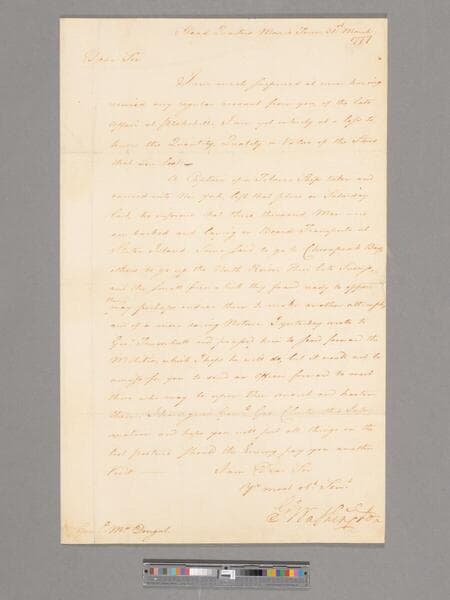 Head Quarters Morris Town 31st March
1777
Dear Sir
I am much surprized at never having
received any regular account from you of the late
affair at Peekskill. I am yet intirely at a loss to
know the Quantity, Quality or Value of the Stores
that were lost.
A Captain of a Tobacco Ship taken and
carried into New York, left that place on Saturday
last, he informs that three thousand Men were
embarked and laying on Board Transports at
Staten Island. Some said to go to Chesapeak Bay
others to go up the North River. Their late Success,
and the small force which they found ready to oppose
them
may perhaps induce them to make another attempt
and of a more daring Nature. I yesterday wrote to
Genl Trumbull and pressed him to send forward the
Militia, which I hope he will do, but it would not be
amiss for you to send an Officer forward to meet
those who may be upon their march and hasten
them. I have given Genl Geo. Clinton this Infor
mation and hope you will put all things in the
best posture should the Enemy pay you another
Visit
I am Dear Sir
Yr most obt Servt
G Washington
Mc Dougal